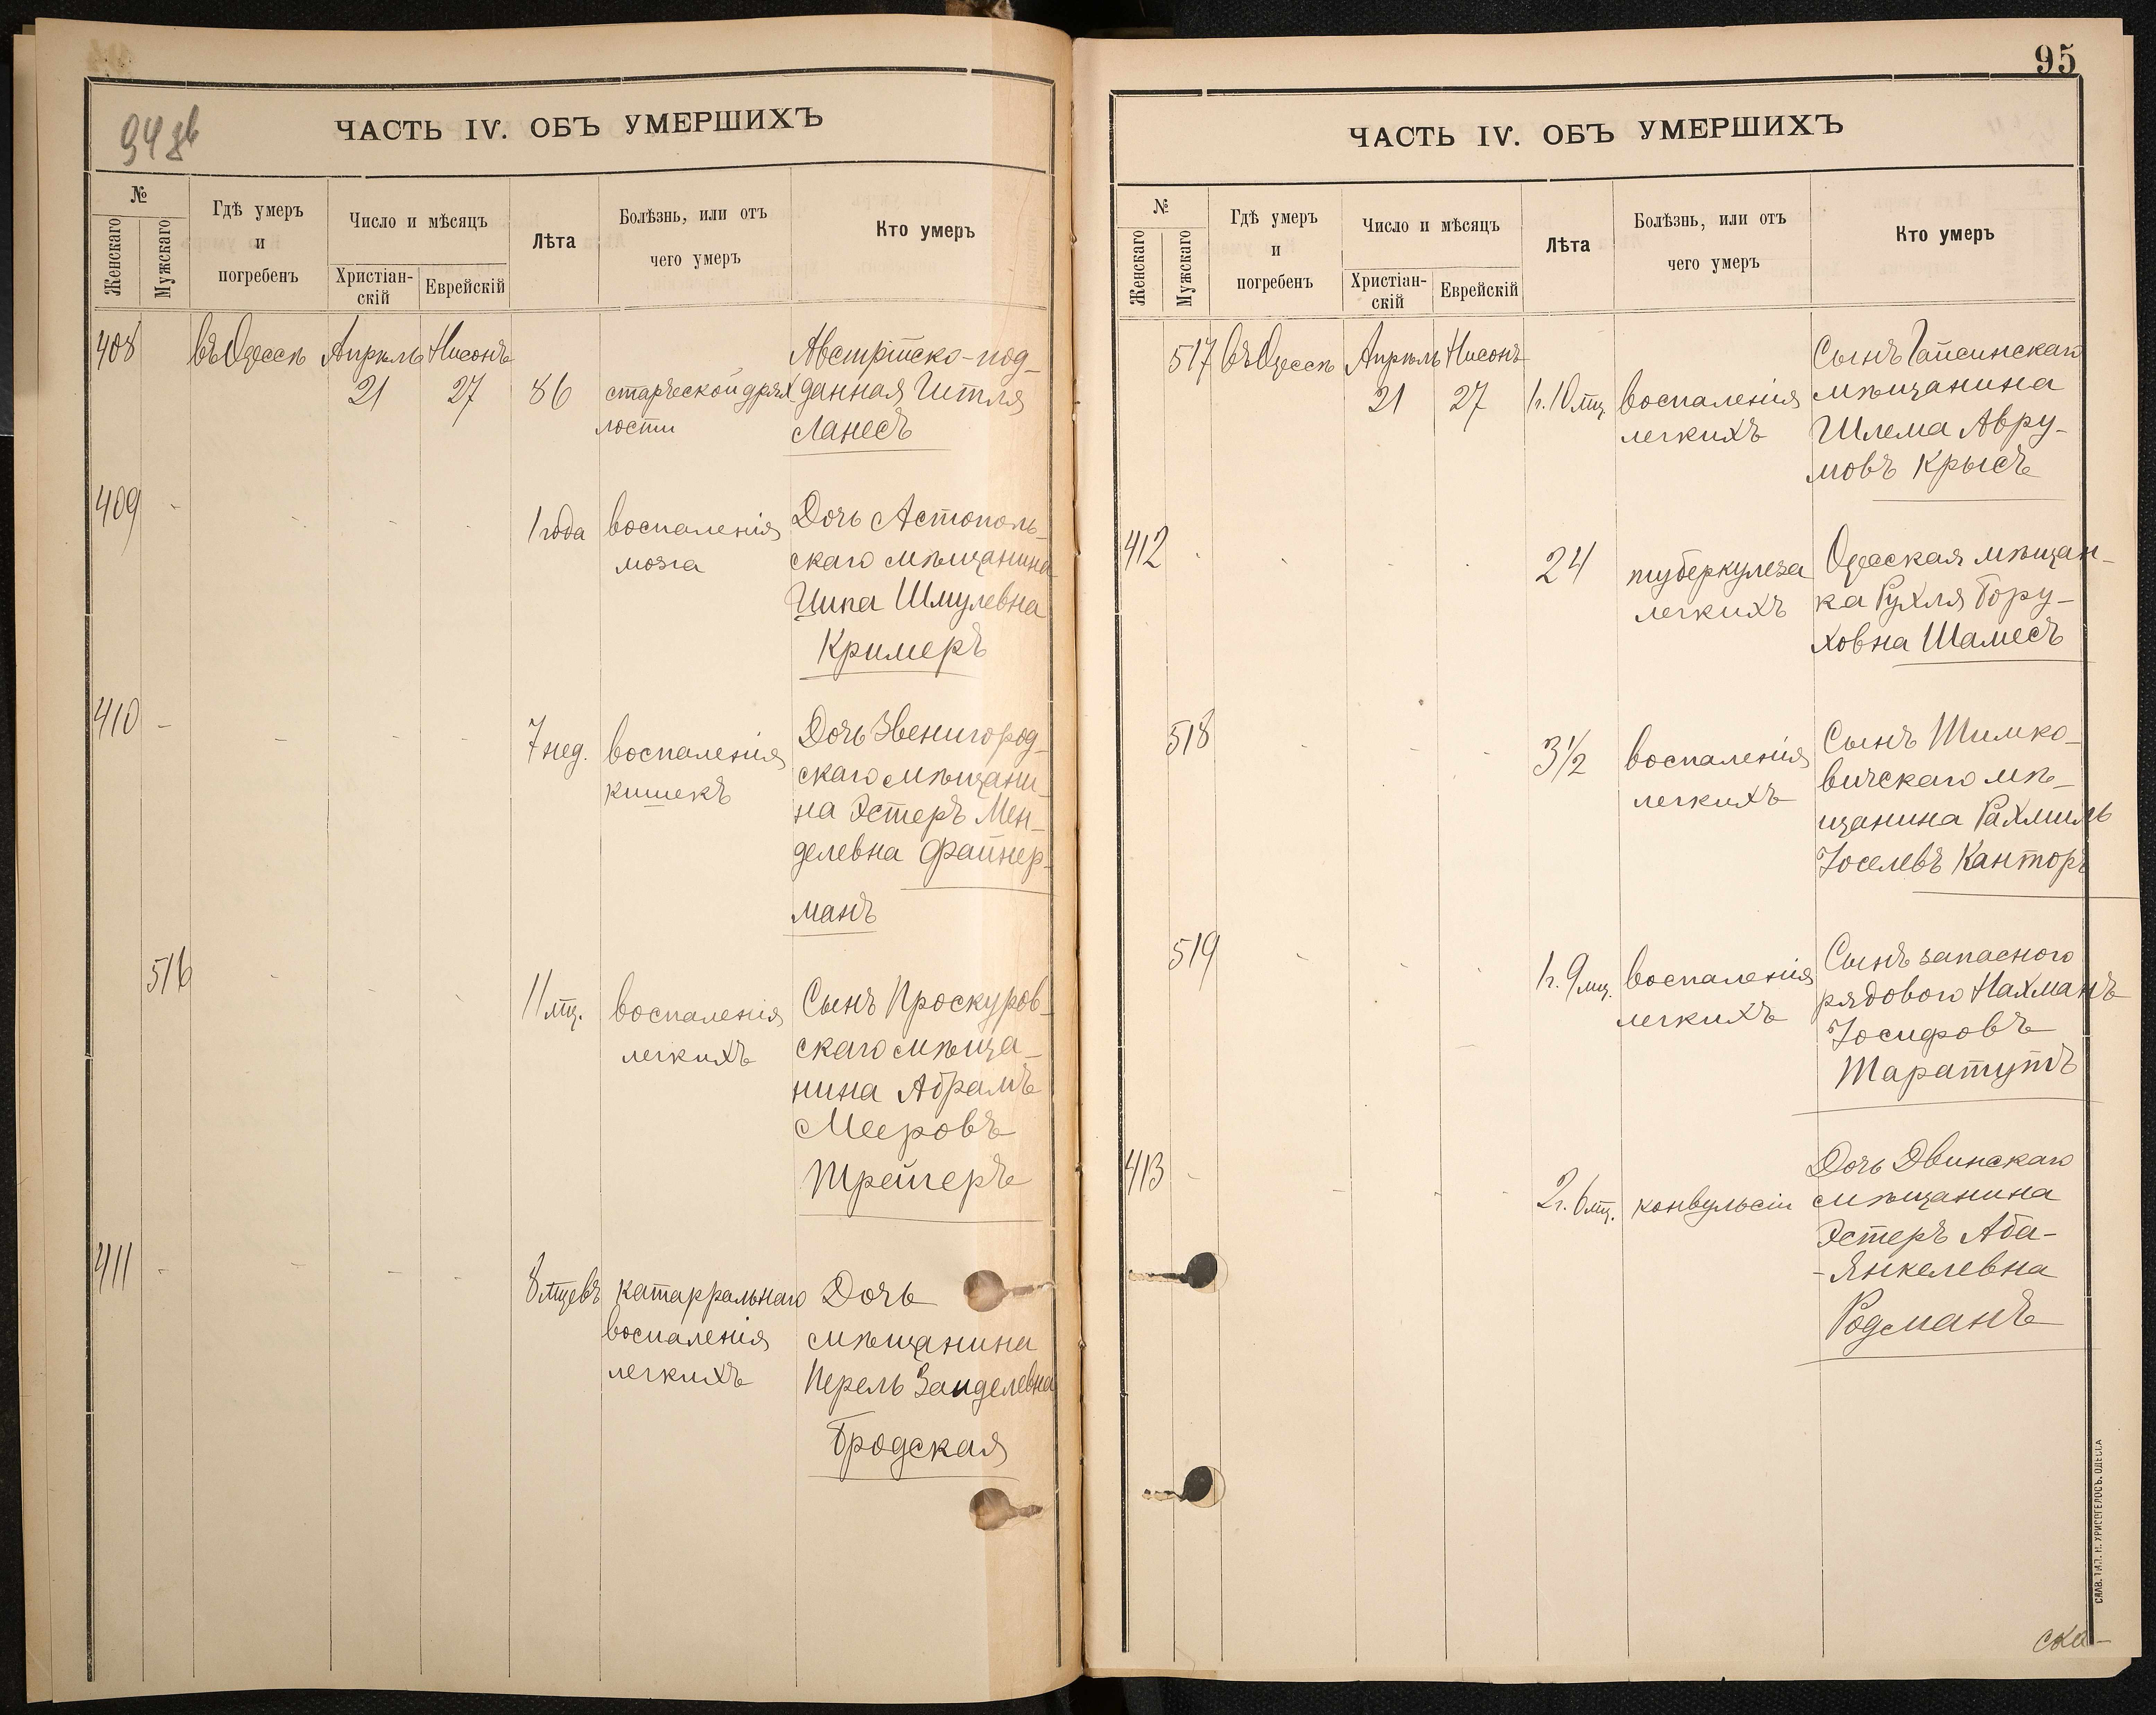 94 об
ЧАСТЬ IV. ОБЪ УМЕРШИХЪ
№
Женскаго
Мужскаго
Гдѣ умеръ
и
погребенъ
Число и мѣсяцъ
Христіан-
скій
Еврейскій
Лѣта
Болѣзнь, или отъ
чего умеръ
Кто умеръ
408
въ Одессѣ
Апрѣль
21
Нисонъ
27
86
старческой дрях
лости
Австрійско-под-
данная Гитля
Ланесъ
409
1 года
воспаленія
мозга
Дочь Астополь-
скаго мѣщанина
Ципа Шмулевна
Кримеръ
410
7 нед.
воспаленія
кишекъ
Дочь Звенигород-
скаго мѣщани-
на Эстеръ Мен-
делевна Файнер-
манъ
516
11 мц.
воспаленія
легкихъ
Сынъ Проскуров-
скаго мѣща-
нина Абрамъ
Мееровъ
Трейгеръ
411
8 мцевъ
катарральнаго
воспаленія
легкихъ
Дочь
мѣщанина
Перель Зайделевна
Бродская
95
ЧАСТЬ IV. ОБЪ УМЕРШИХЪ
№
Женскаго
Мужскаго
Гдѣ умеръ
и
погребенъ
Число и мѣсяцъ
Христіан-
скій
Еврейскій
Лѣта
Болѣзнь, или отъ
чего умеръ
Кто умеръ
517
въ Одессѣ
Апрѣль
21
Нисонъ
27
1 г. 10 мц.
воспаленія
легкихъ
Сынъ Гайсинскаго
мѣщанина
Шлема Авру-
мовъ Крысъ
412
24
туберкулеза
легкихъ
Одесская мѣщан-
ка Рухля Бору-
ховна Шамесъ
518
3½
воспаленія
легкихъ
Сынъ Тимко-
вичскаго мѣ-
щанина Рахмиль
Іоселевъ Канторъ
519
1 г. 9 мц.
воспаленія
легкихъ
Сынъ запасного
рядового Нахманъ
Іосифовъ
Таратутъ
413
2 г. 6 мц.
конвульсіи
Дочь Двинскаго
мѣщанина
Эстеръ Аба-
-Янкелевна
Родманъ
СЛАВ. ТИП. Н. ХРИСОГЕЛОСЪ. ОДЕССА